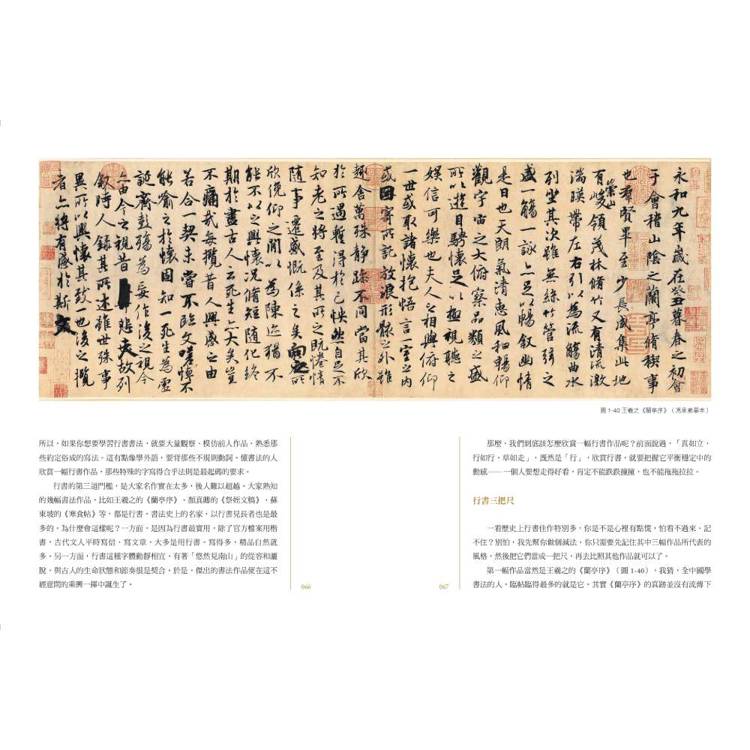 永和九年歲在癸丑暮春之初會
于會稽山陰之蘭亭脩禊事
也羣賢畢至少長咸集此地
有崇山峻領茂林脩竹又有清流激
湍暎帶左右引以為流觴曲水
列坐其次雖無絲竹管弦之
盛一觴一詠亦足以暢敘幽情
是日也天朗氣清惠風和暢仰
觀宇宙之大俯察品類之盛
所以遊目騁懷足以極視聽之
娛信可樂也夫人之相與俯仰
一世或取諸懷抱悟言一室之內
或因寄所託放浪形骸之外雖
趣舍萬殊靜躁不同當其欣
於所遇蹔得於己快然自足不
知老之將至及其所之既惓情
隨事遷感慨係之矣向之所
欣俛仰之閒以為陳迹猶不
能不以之興懷況脩短隨化終
期於盡古人云死生亦大矣豈
不痛哉每攬昔人興感之由
若合一契未嘗不臨文嗟悼不
能喻之於懷固知一死生為虛
誕齊彭殤為妄作後之視今
亦由今之視昔悲夫故列
敘時人錄其所述雖世殊事
異所以興懷其致一也後之攬
者亦將有感於斯文
圖 1-40 王羲之《蘭亭序》（馮承素摹本）
所以，如果你想要學習行書書法，就要大量觀察、模仿前人作品，熟悉那
些約定俗成的寫法。這有點像學外語，要背那些不規則動詞。懂書法的人
欣賞一幅行書作品，那些特殊的字寫得合乎法則是最起碼的要求。
行書的第三道門檻，是大家名作實在太多，後人難以超越。大家熟知
的幾幅書法作品，比如王羲之的《蘭亭序》、顏真卿的《祭姪文稿》、蘇
東坡的《寒食帖》等，都是行書。書法史上的名家，以行書見長者也是最
多的。為什麼會這樣呢？一方面，是因為行書最實用。除了官方檔案用楷
書，古代文人平時寫信、寫文章，大多是用行書。寫得多，精品自然就
多。另一方面，行書這種字體動靜相宜，有著「悠然見南山」的從容和灑
脫，與古人的生命狀態和節奏很是契合。於是，傑出的書法作品便在這不
經意間的乘興一揮中誕生了。
066
那麼，我們到底該怎麼欣賞一幅行書作品呢？前面說過，「真如立，
行如行，草如走」，既然是「行」，欣賞行書，就要把握它平衡穩定中的
動感——一個人要想走得好看，肯定不能跌跌撞撞，也不能拖拖拉拉。
行書三把尺
一看歷史上行書佳作特別多，你是不是心裡有點慌，怕看不過來，記
不住？別怕，我先幫你做個減法，你只需要先記住其中三幅作品所代表的
風格，然後把它們當成一把尺，再去比照其他作品就可以了。
第一幅作品當然是王羲之的《蘭亭序》（圖 1-40），我猜，全中國學
書法的人，臨帖臨得最多的就是它。其實《蘭亭序》的真跡並沒有流傳下
067